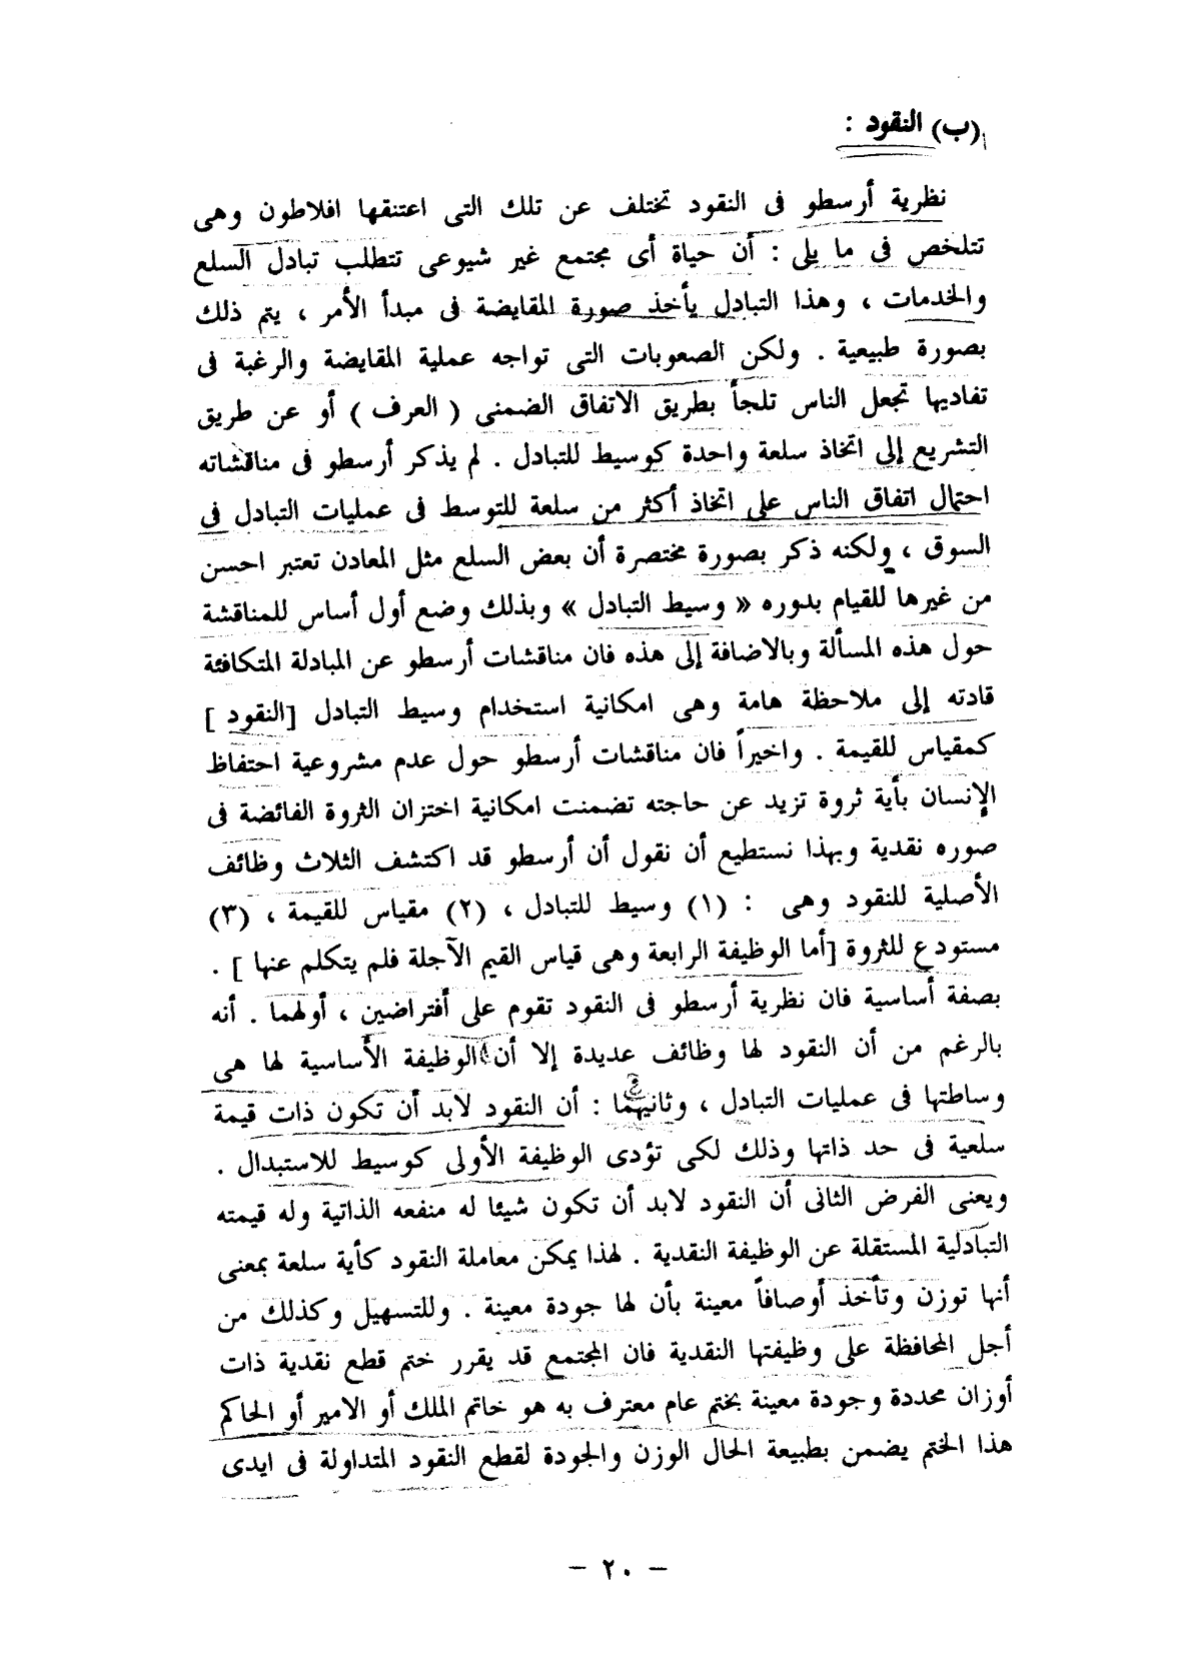 (ب) النقود :
نظرية أرسطو فى النقود تختلف عن تلك التى اعتنقها افلاطون وهى
تتلخص فى ما يلى : أن حياة أى مجتمع غير شيوعى تتطلب تبادل السلع
والخدمات ، وهذا التبادل يأخذ صورة المقايضة فى مبدأ الأمر ، يتم ذلك
بصورة طبيعية . ولكن الصعوبات التى تواجه عملية المقايضة والرغبة فى
تفاديها تجعل الناس تلجأ بطريق الاتفاق الضمنى ( العرف ) أو عن طريق
التشريع إلى اتخاذ سلعة واحدة كوسيط للتبادل . لم يذكر أرسطو فى مناقشاته
احتمال اتفاق الناس على اتخاذ أكثر من سلعة للتوسط فى عمليات التبادل فى
السوق ، ولكنه ذكر بصورة مختصرة أن بعض السلع مثل المعادن تعتبر احسن
من غيرها للقيام بدوره « وسيط التبادل » وبذلك وضع أول أساس للمناقشة
حول هذه المسألة وبالاضافة إلى هذه فان مناقشات أرسطو عن المبادلة المتكافئة
قادته إلى ملاحظة هامة وهى امكانية استخدام وسيط التبادل [النقود ]
كمقياس للقيمة . واخيراً فان مناقشات أرسطو حول عدم مشروعية احتفاظ
الإنسان بأية ثروة تزيد عن حاجته تضمنت امكانية اختزان الثروة الفائضة فى
صوره نقدية وبهذا نستطيع أن نقول أن أرسطو قد اكتشف الثلاث وظائف
الأصلية للنقود وهى : (١) وسيط للتبادل ، (٢) مقياس للقيمة ، (٣)
مستودع للثروة [أما الوظيفة الرابعة وهى قياس القيم الآجلة فلم يتكلم عنها ] .
بصفة أساسية فان نظرية أرسطو فى النقود تقوم على أفتراضين ، أولهما . أنه
بالرغم من أن النقود لها وظائف عديدة إلا أن الوظيفة الأساسية لها هى
وساطتها فى عمليات التبادل ، وثانيهما : أن النقود لابد أن تكون ذات قيمة
سلعية فى حد ذاتها وذلك لكى تؤدى الوظيفة الأولى كوسيط للاستبدال .
ويعنى الفرض الثانى أن النقود لابد أن تكون شيئا له منفعه الذاتية وله قيمته
التبادلية المستقلة عن الوظيفة النقدية . لهذا يمكن معاملة النقود كأية سلعة بمعنى
أنها توزن وتأخذ أوصافاً معينة بأن لها جودة معينة . وللتسهيل وكذلك من
أجل المحافظة على وظيفتها النقدية فان المجتمع قد يقرر ختم قطع نقدية ذات
أوزان محددة وجودة معينة بختم عام معترف به هو خاتم الملك أو الامير أو الحاكم
هذا الختم يضمن بطبيعة الحال الوزن والجودة لقطع النقود المتداولة فى ايدى
- ٢٠ -